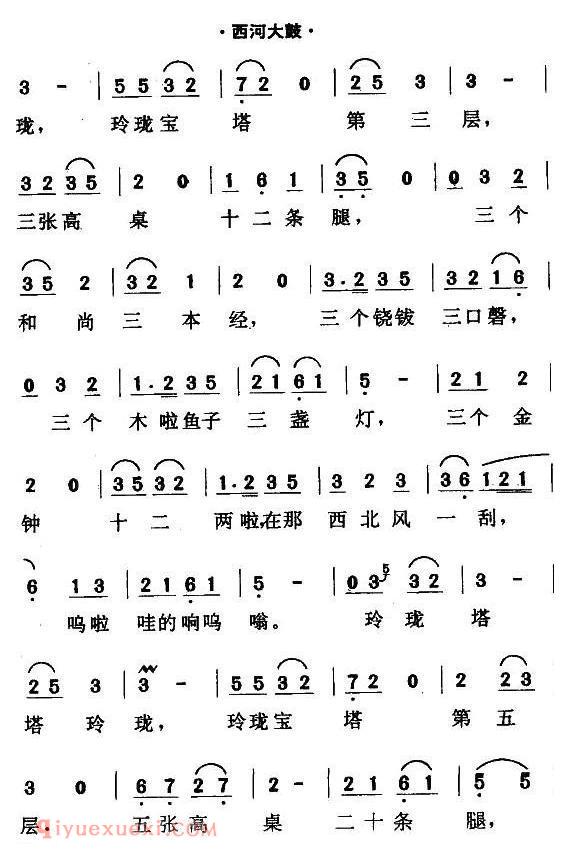 ·西河大鼓·
3 - | 5532 | 72 0 | 25 3 3 |
珑，玲珑宝塔 第三层，
3235 | 2 0 | 1 6 1 | 35 0 | 0 3 2 |
三张高桌 十二条腿， 三个
35 2 | 32 1 | 2 0 | 3·235 | 3216 |
和尚三本经， 三个铙钹三口磬，
0 3 2 | 1·235 | 2161 | 5 - | 21 2 |
三个木啦鱼子三盏灯， 三个金
2 0 | 3532 | 1·235 | 3 2 3 | 36 121 |
钟 十二两啦,在那西北风一刮，
6 13 | 2161 | 5 - | 03 5 32 | 3 - |
呜啦哇的响呜嗡。 玲珑塔
25 3 | 3 - | 5532 | 72 0 | 2 23 |
塔玲珑， 玲珑宝塔 第五
3 0 | 6727 | 2 - | 2161 | 5 5 |
层。 五张高桌 二十条腿，
qiyuexuexi.com